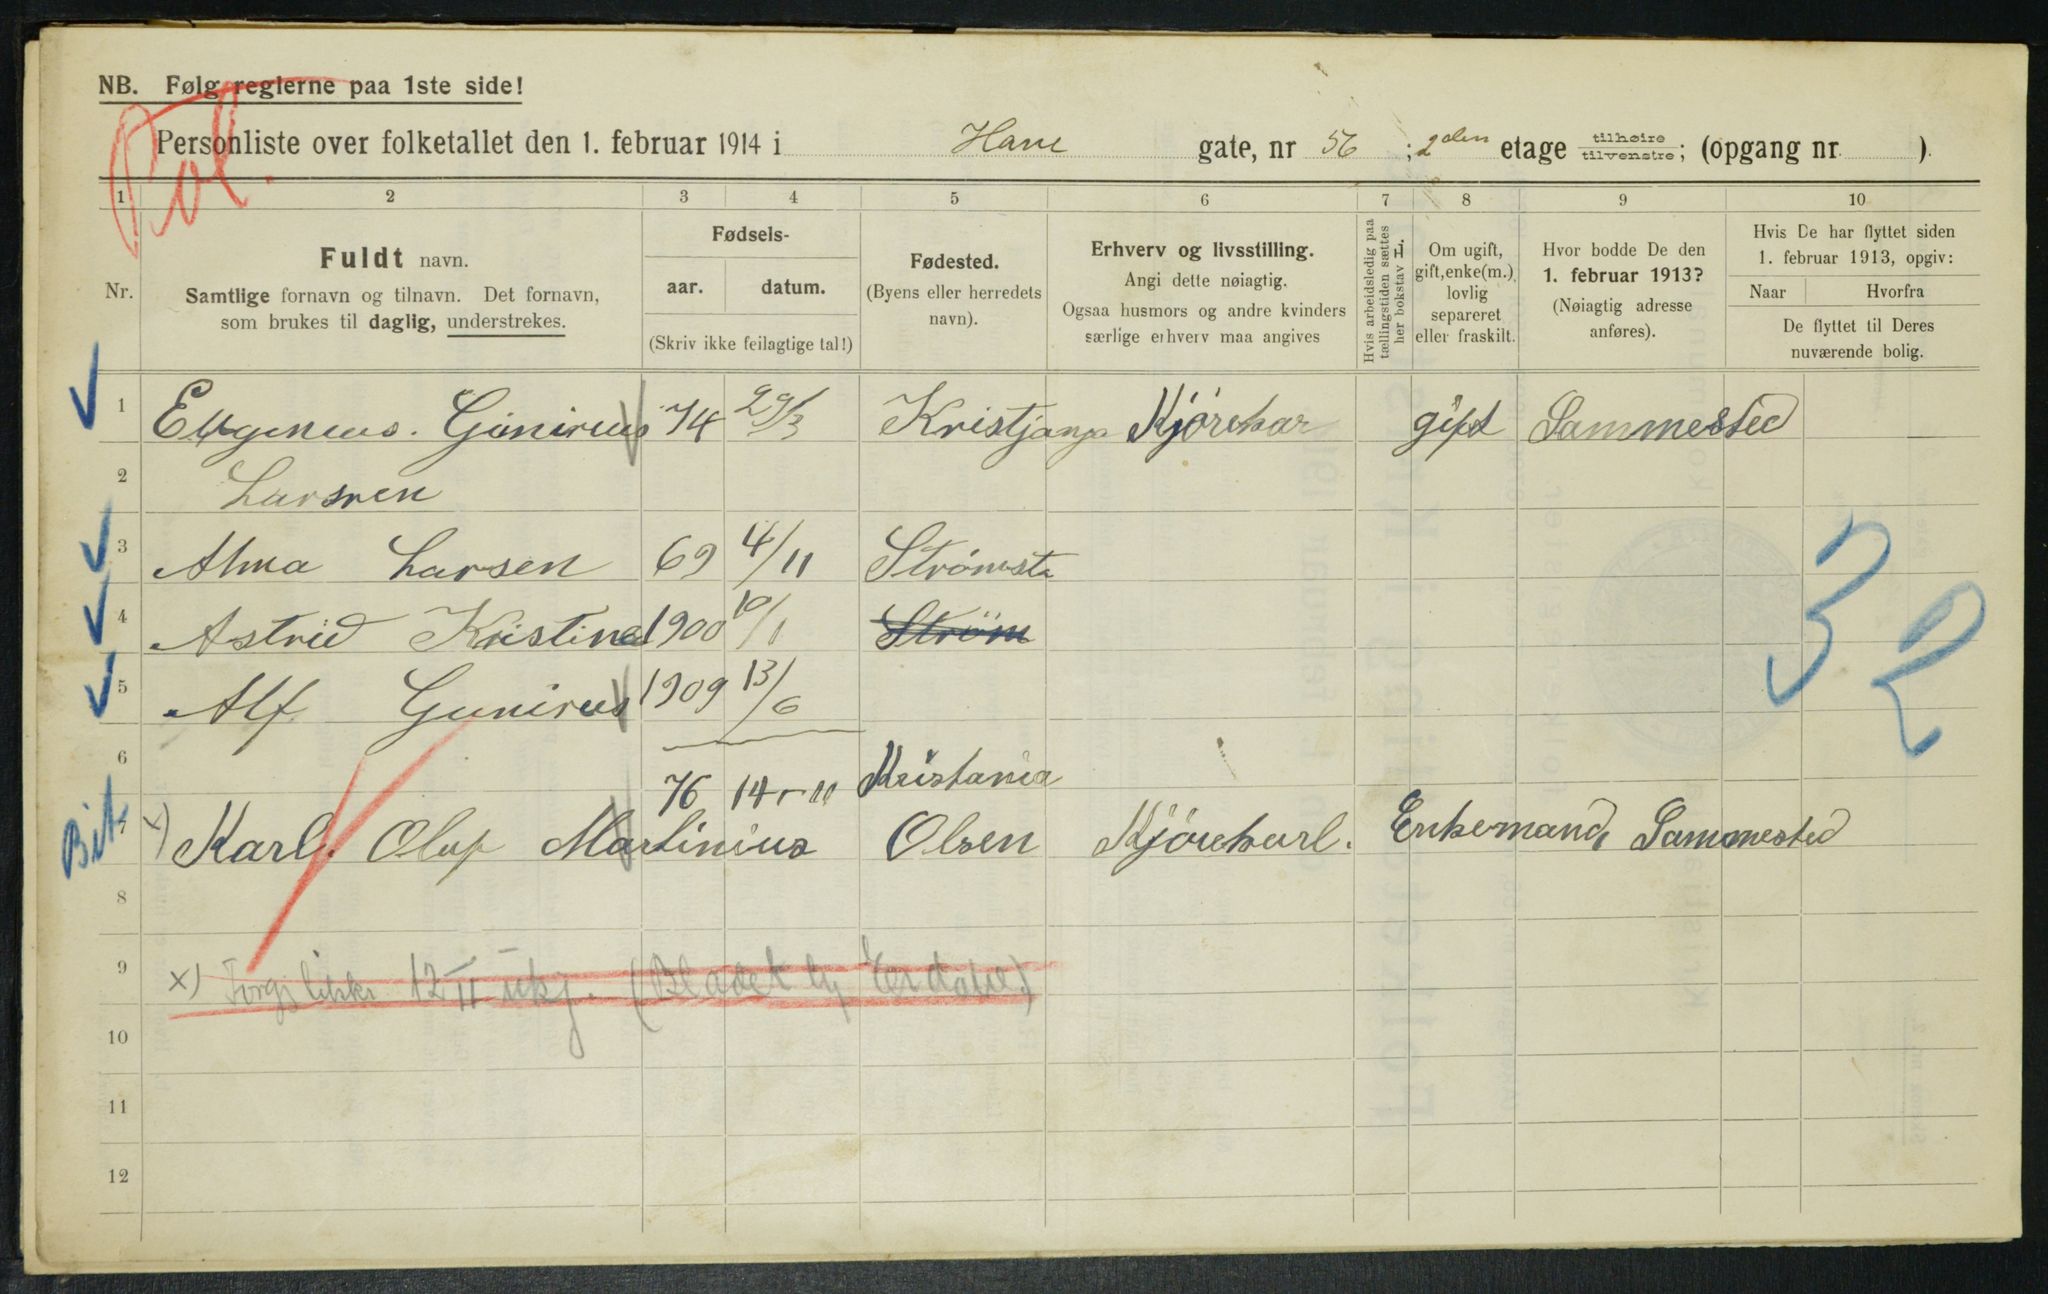 NB. Følg reglerne paa 1ste side!
Pol.
Personliste over folketallet den 1. februar 1914 i Have gate, nr 56 ; 2den etage tilhøire/tilvenstre; (opgang nr. ).
1 2 3 4 5 6 7 8 9 10
Nr.
Fuldt navn.
Samtlige fornavn og tilnavn. Det fornavn,
som brukes til daglig, understrekes.
Fødsels-
aar. datum.
(Skriv ikke feilagtige tal!)
Fødested.
(Byens eller herredets
navn).
Erhverv og livsstilling.
Angi dette nøiagtig.
Ogsaa husmors og andre kvinders
særlige erhverv maa angives
Hvis arbeidsledig paa
tællingstiden sættes
her bokstav L.
Om ugift,
gift, enke(m.),
lovlig
separeret
eller fraskilt.
Hvor bodde De den
1. februar 1913?
(Nøiagtig adresse
anføres).
Hvis De har flyttet siden
1. februar 1913, opgiv:
Naar Hvorfra
De flyttet til Deres
nuværende bolig.
1 Eugeneus. Gunireus 74 29/3 Kristjanja Kjørekar gift Sammested
2 Larsen
3 Alma Larsen 69 4/11 Strømsta
4 Astrid Kristine 1900 10/1 Strøm
5 Alf Gunireus 1909 13/6
6 76 14-11 Kristania
7 x) Karl. Oluf Martinius Olsen Kjørekarl. Enkemand, Sammested
Bit
8
9 x) 12/II (Bladet
10
11
12
3
2